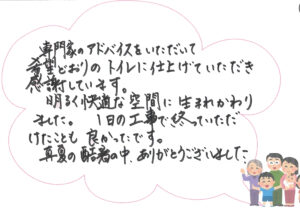 専門家のアドバイスをいただいて
希望どおりのトイレに仕上げていただき
感謝しています。
明るく快適な空間に生まれかわり
ました。 1日の工事で終っていただ
けたことも良かったです。
真夏の酷暑の中、ありがとうございました